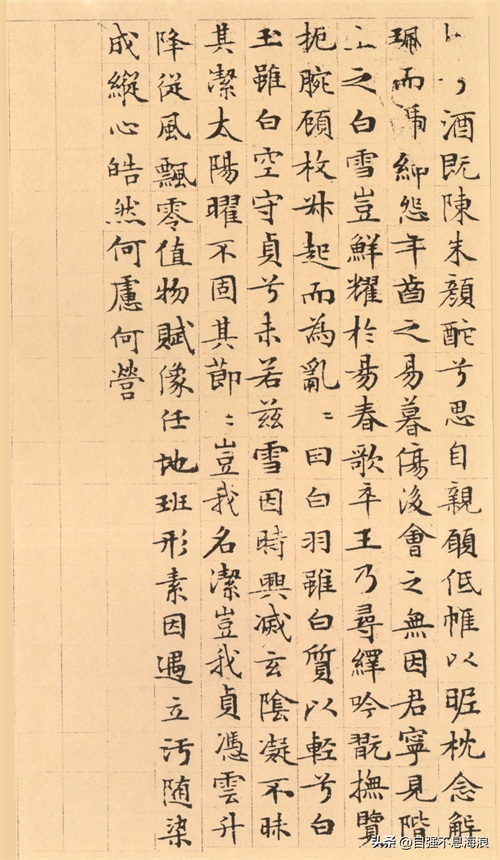 酒既陳朱顏酡兮思自親願低帷以昵枕念解
珮而褫紳怨年齒之易暮傷後會之無因君寧見階
之白雪豈鮮耀於昜春歌卒王乃尋繹吟翫撫覽
扼腕顧枚叔起而為亂〻曰白羽雖白質以輕兮白
玉雖白空守貞兮未若茲雪因時興滅玄陰凝不昧
其潔太陽曜不固其節〻豈我名潔豈我貞憑雲升
降從風飄零值物賦像任地班形素因遇立污随染
成縱心皓然何慮何營
头条 @自强不息海浪